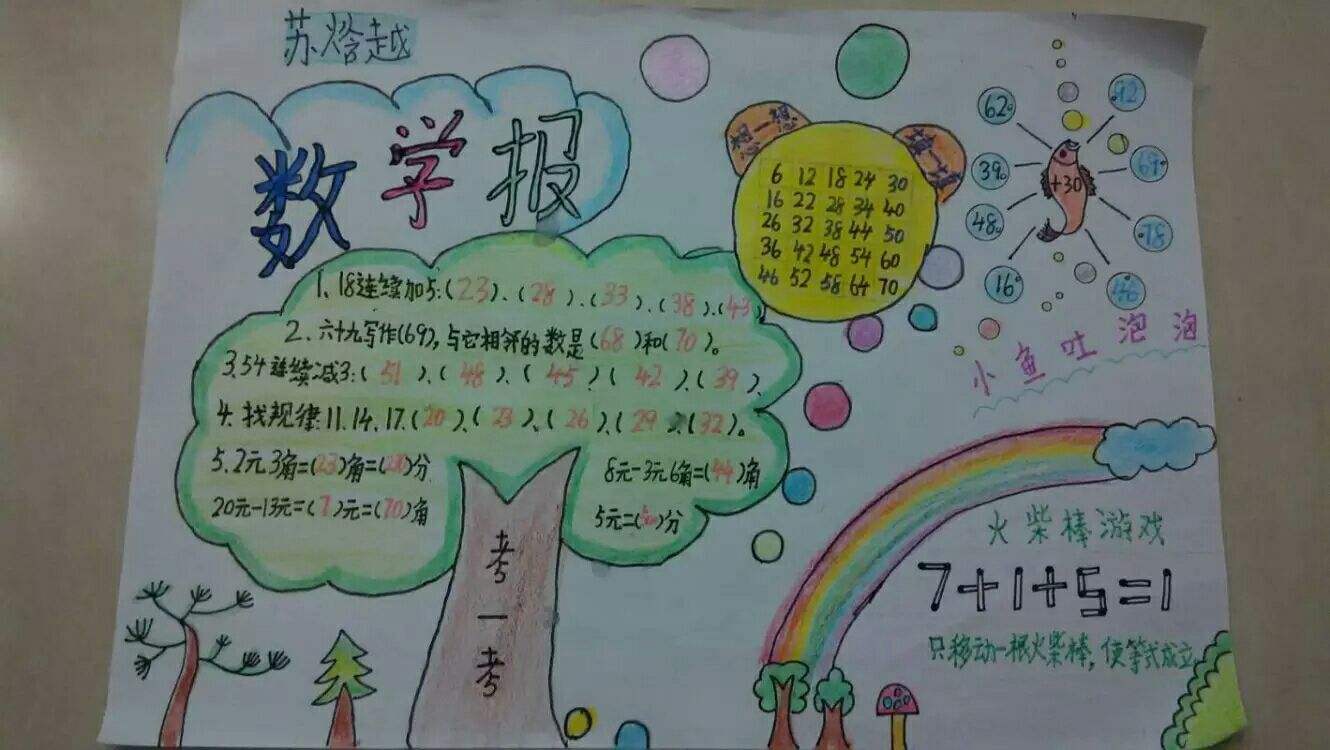 苏焓越
数学报
1、18连续加5:(23)、(28)、(33)、(38)、(43)
2、六十九写作(69),与它相邻的数是(68)和(70)。
3、54连续减3:(51)、(48)、(45)、(42)、(39)、
4、找规律:11、14、17、(20)、(23)、(26)、(29)、(32)。
5、2元3角=(23)角=(230)分
8元-3元6角=(44)角
20元-13元=(7)元=(70)角
5元=(500)分
考一考
想一想
6 12 18 24 30
16 22 28 34 40
26 32 38 44 50
36 42 48 54 60
46 52 58 64 70
62
92
39
+30
69
48
78
16
46
小鱼吐泡泡
火柴棒游戏
7+1+5=1
只移动一根火柴棒,使等式成立